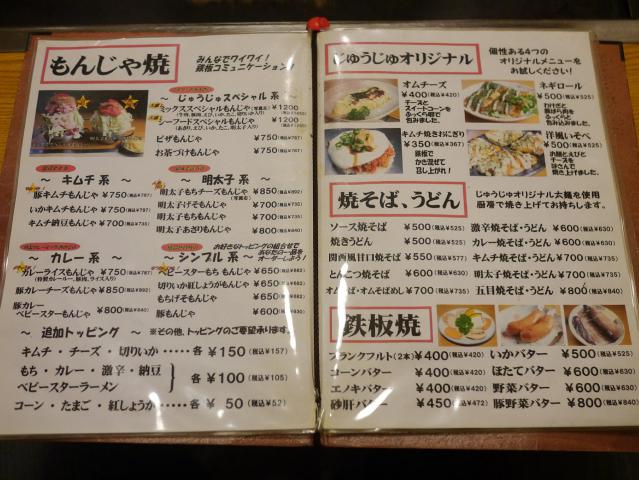 もんじゃ焼
みんなでワイワイ!
鉄板コミュニケーション!
~ じゅうじゅスペシャル系 ~
ミックススペシャルもんじゃ(写真左) ¥1200
シーフードスペシャルもんじゃ ¥1200
(あさり,えび,いか,たこ,明太子入り)
ピザもんじゃ ¥750(税込¥787)
お茶づけもんじゃ ¥750(税込¥787)
~ キムチ系 ~
豚キムチもんじゃ ¥750(税込¥787)
いかキムチもんじゃ ¥750(税込¥787)
キムチ納豆もんじゃ ¥700(税込¥735)
~ 明太子系 ~
明太子もちチーズもんじゃ ¥850(税込¥892)
(写真右)
明太子げそもんじゃ ¥700(税込¥735)
明太子もちもんじゃ ¥700(税込¥735)
明太子あさりもんじゃ ¥800(税込¥840)
~ カレー系 ~
カレーライスもんじゃ ¥750(税込¥787)
豚カレーチーズもんじゃ ¥850(税込¥892)
豚カレー
ベビースターもんじゃ ¥800(税込¥840)
~ シンプル系 ~
お好きなトッピングの組合せで
ベビースターもちもんじゃ ¥650(税込¥682)
切りいか紅しょうがもんじゃ ¥650(税込¥682)
もちげそもんじゃ ¥650(税込¥682)
豚もんじゃ ¥600(税込¥630)
~ 追加トッピング ~ ※その他、トッピングのご要望承ります。
キムチ・チーズ・切りいか・・・・・・各 ¥150(税込¥157)
もち・カレー・激辛・納豆
ベビースターラーメン 各 ¥100(税込¥105)
コーン・たまご・紅しょうが・・・・・各 ¥50(税込¥52)
じゅうじゅオリジナル
個性ある4つの
オリジナルメニューを
お試しください!
オムチーズ
¥400(税込¥420)
チーズと
スイートコーンを
ふっくら卵で
包みました。
ネギロール
¥500(税込¥525)
わけぎと
豚ばら肉を
ふっくらと
包み込みました。
キムチ焼きおにぎり
¥350(税込¥367)
鉄板で
かき混ぜて
召し上がれ!
洋風いそべ
¥500(税込¥525)
お餅とえびと
チーズを
はさんで
焼き上げました。
焼そば、うどん
じゅうじゅオリジナル太麺を使用
厨房で焼き上げてお持ちします。
ソース焼そば ¥500(税込¥525)
焼きうどん ¥500(税込¥525)
関西風甘口焼そば ¥550(税込¥577)
とんこつ焼そば ¥600(税込¥630)
オムそば・オムそばめし ¥700(税込¥735)
激辛焼そば・うどん ¥600(税込¥630)
カレー焼そば・うどん ¥600(税込¥630)
キムチ焼そば・うどん ¥700(税込¥735)
明太子焼そば・うどん ¥700(税込¥735)
五目焼そば・うどん ¥800(税込¥840)
鉄板焼
フランクフルト(2本) ¥400(税込¥420)
コーンバター ¥400(税込¥420)
エノキバター ¥400(税込¥420)
砂肝バター ¥450(税込¥472)
いかバター ¥500(税込¥525)
ほたてバター ¥600(税込¥630)
野菜バター ¥600(税込¥630)
豚野菜バター ¥800(税込¥840)